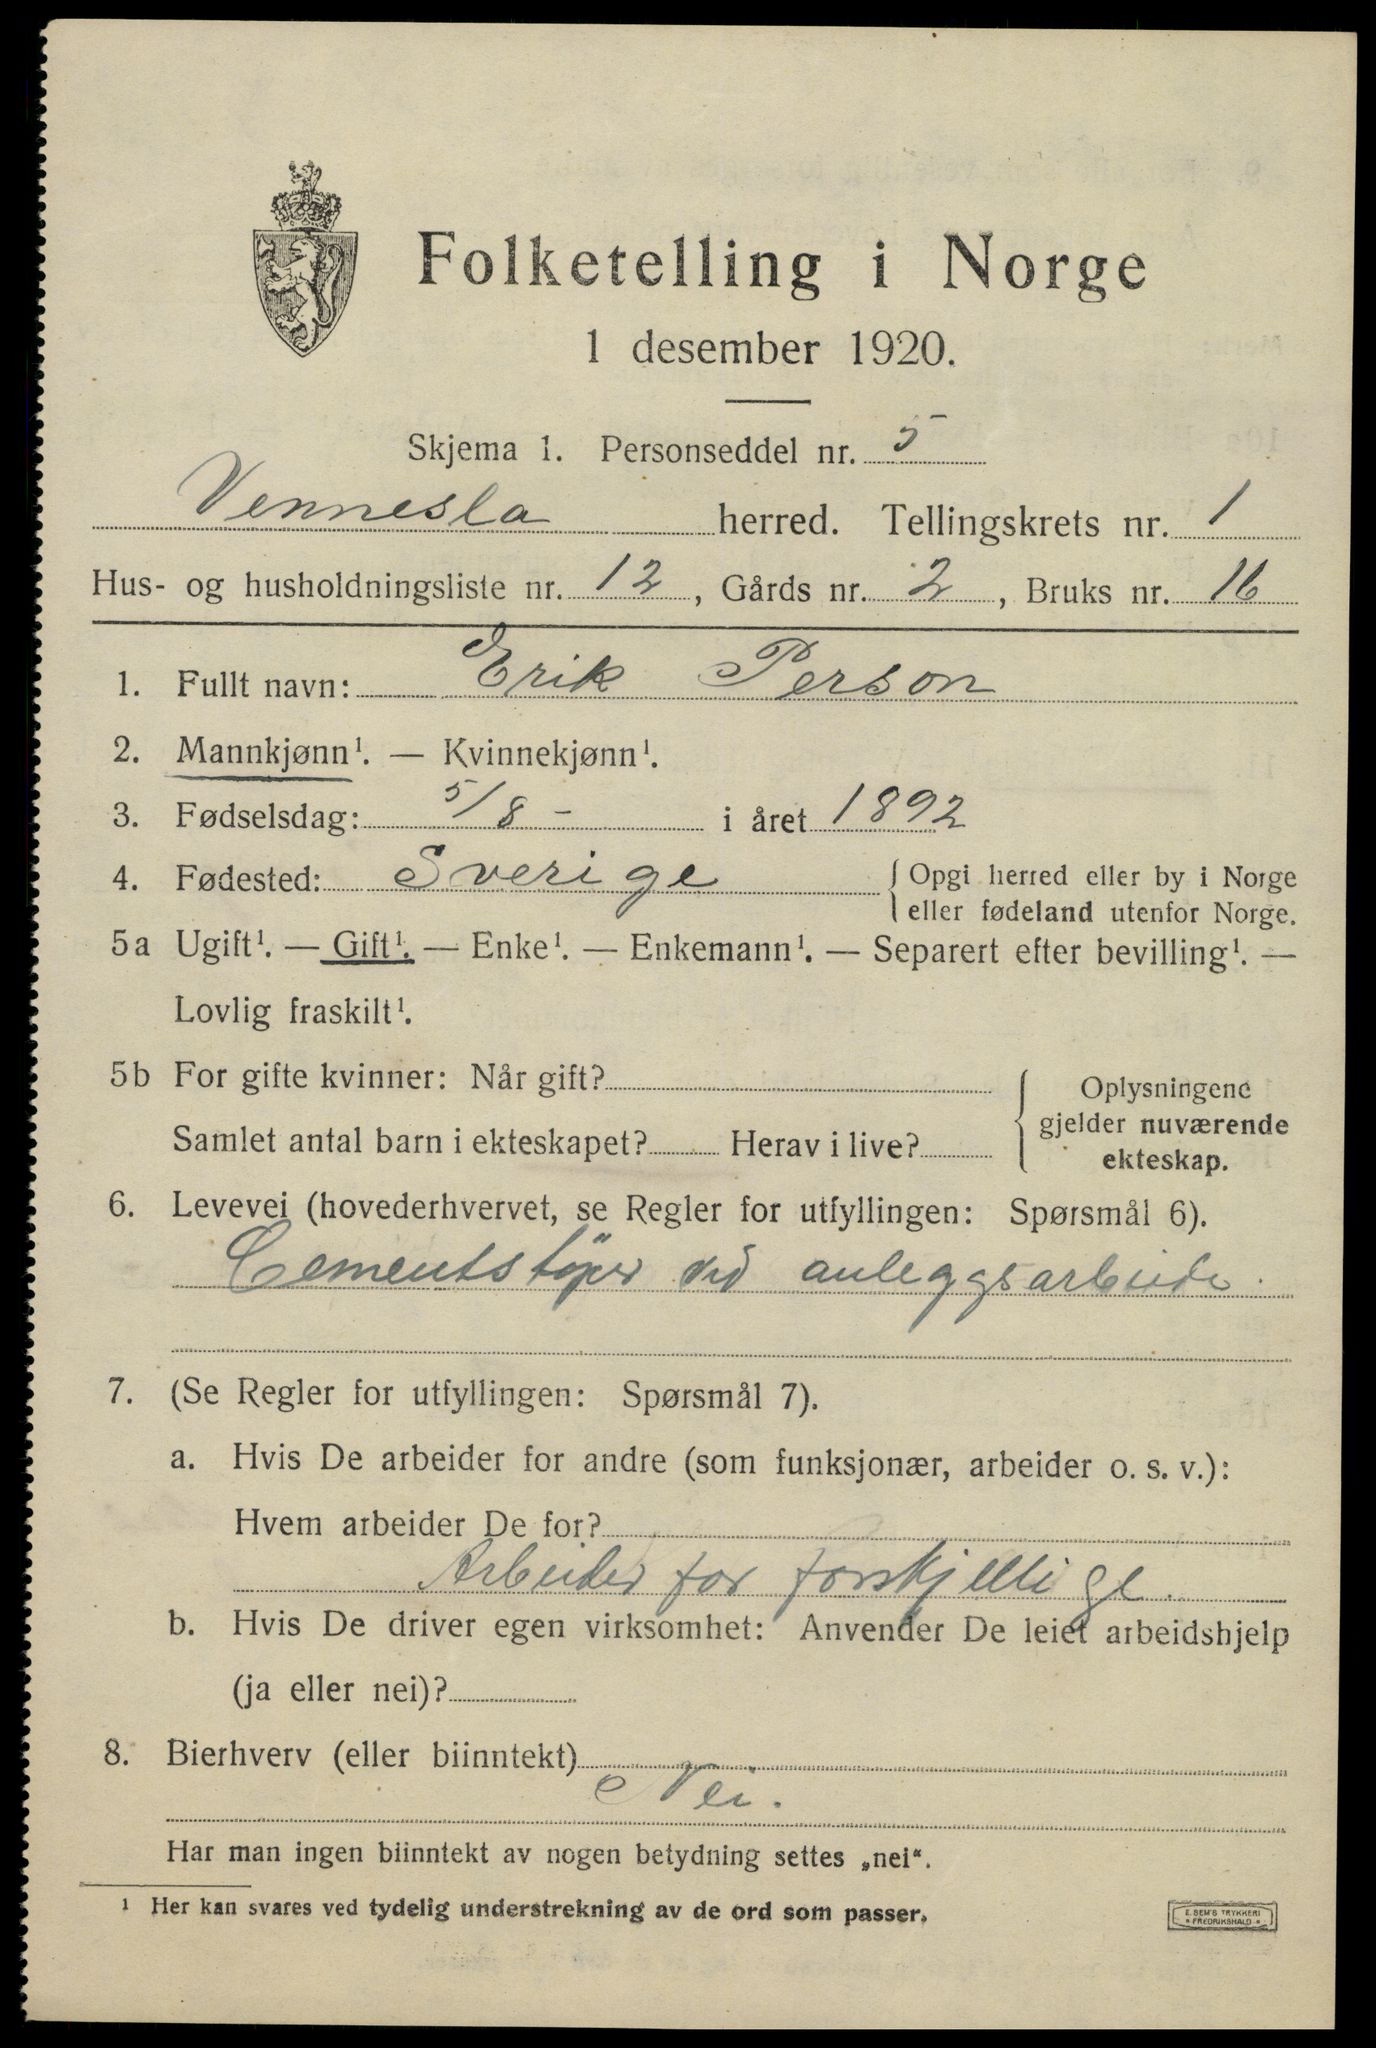 Folketelling i Norge
1 desember 1920.
Skjema 1. Personseddel nr. 5
Vennesla herred. Tellingskrets nr. 1
Hus- og husholdningsliste nr. 12, Gårds nr. 2, Bruks nr. 16
1. Fullt navn: Erik Person
2. Mannkjønn¹. — Kvinnekjønn¹.
3. Fødselsdag: 5/8 - i året 1892
4. Fødested: Sverige { Opgi herred eller by i Norge
eller fødeland utenfor Norge.
5a Ugift¹. — Gift¹. — Enke¹. — Enkemann¹. — Separert efter bevilling¹. —
Lovlig fraskilt¹.
5b For gifte kvinner: Når gift?
Samlet antal barn i ekteskapet? Herav i live?
{ Oplysningene
gjelder nuværende
ekteskap.
6. Levevei (hovederhvervet, se Regler for utfyllingen: Spørsmål 6).
Cementstöper ved anleggsarbeide.
7. (Se Regler for utfyllingen: Spørsmål 7).
a. Hvis De arbeider for andre (som funksjonær, arbeider o. s. v.):
Hvem arbeider De for?
Arbeider for forskjellige.
b. Hvis De driver egen virksomhet: Anvender De leiet arbeidshjelp
(ja eller nei)?
8. Bierhverv (eller biinntekt)
Nei.
Har man ingen biinntekt av nogen betydning settes „nei“.
¹ Her kan svares ved tydelig understrekning av de ord som passer.
E. SEM'S TRYKKERI
* FREDRIKSHALD *